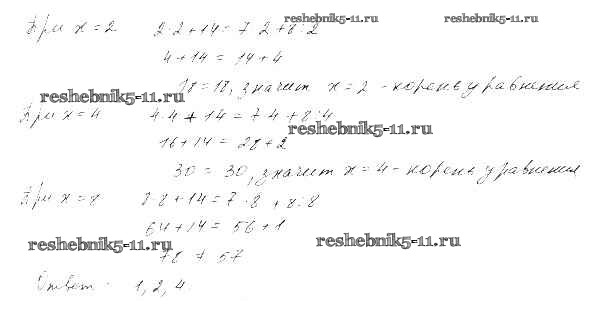 reshebnik5-11.ru reshebnik5-11.ru
При x = 2 2·2+14 = 7·2+8:2
4+14 = 14+4
18 = 18, значит x = 2 - корень уравнения
reshebnik5-11.ru
При x = 4 4·4+14 = 7·4+8:4
reshebnik5-11.ru
16+14 = 28+2
30 = 30, значит x = 4 - корень уравнения
При x = 8 8·8+14 = 7·8+8:8
64+14 = 56+1
reshebnik5-11.ru reshebnik5-11.ru
78 ≠ 57
Ответ: 1, 2, 4.